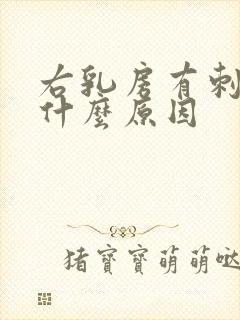 右乳房有刺
什麼原因
猪寶寶萌萌噠